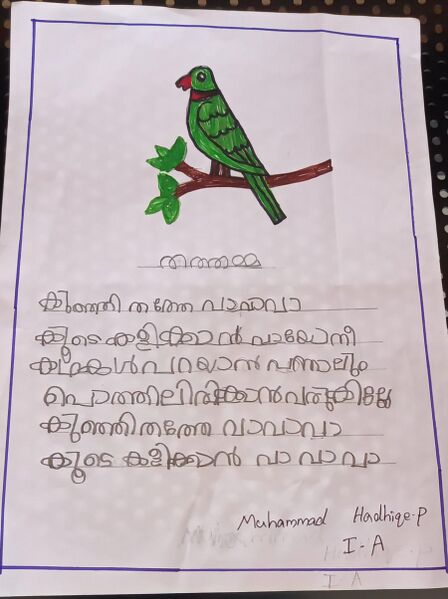 തത്തമ്മ
കുഞ്ഞി തത്തേ വാവാവാ
കൂടെ കളിക്കാൻ വായോനീ
കഥകൾ പറയാൻ വന്നാലും
പൊത്തിലിരിക്കാൻ വരുകില്ലേ
കുഞ്ഞിതത്തേ വാവാവാ
കൂടെ കളിക്കാൻ വാ വാ വാ
Muhammad Hadhiqe-P
I-A